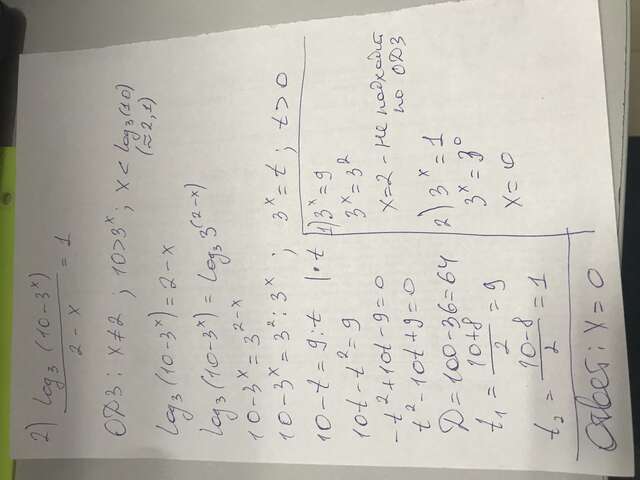 2) log₃(10-3ˣ)
2-x = 1
ОДЗ: x≠2 ; 10>3ˣ; x<log₃(10)
(≈2,1)
log₃(10-3ˣ)=2-x
log₃(10-3ˣ)=log₃3⁽²⁻ˣ⁾
10-3ˣ=3²⁻ˣ
10-3ˣ=3²:3ˣ ; 3ˣ=t ; t>0
10-t=9:t |·t
10t-t²=9
-t²+10t-9=0
t²-10t+9=0
D=100-36=64
t₁=(10+8)/2=9
t₂=(10-8)/2=1
1) 3ˣ=9
3ˣ=3²
x=2 - не подходит
по ОДЗ
2) 3ˣ=1
3ˣ=3⁰
x=0
Ответ: x=0